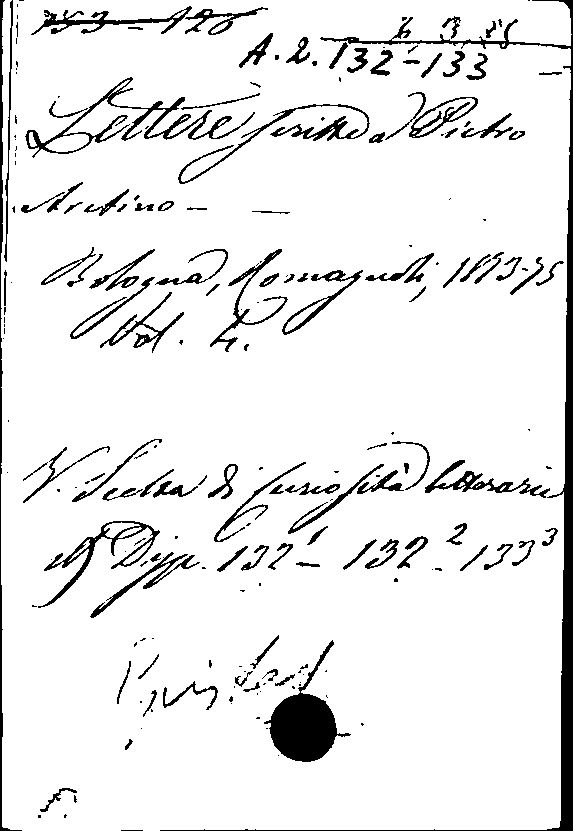 A. 2. 132-133
Lettere scritte a Pietro
Aretino -
Bologna, Romagnoli, 1873-75
Vol. 4.
V. Scelta di Curiosità letterarie
Disp. 132¹ - 132² - 133³